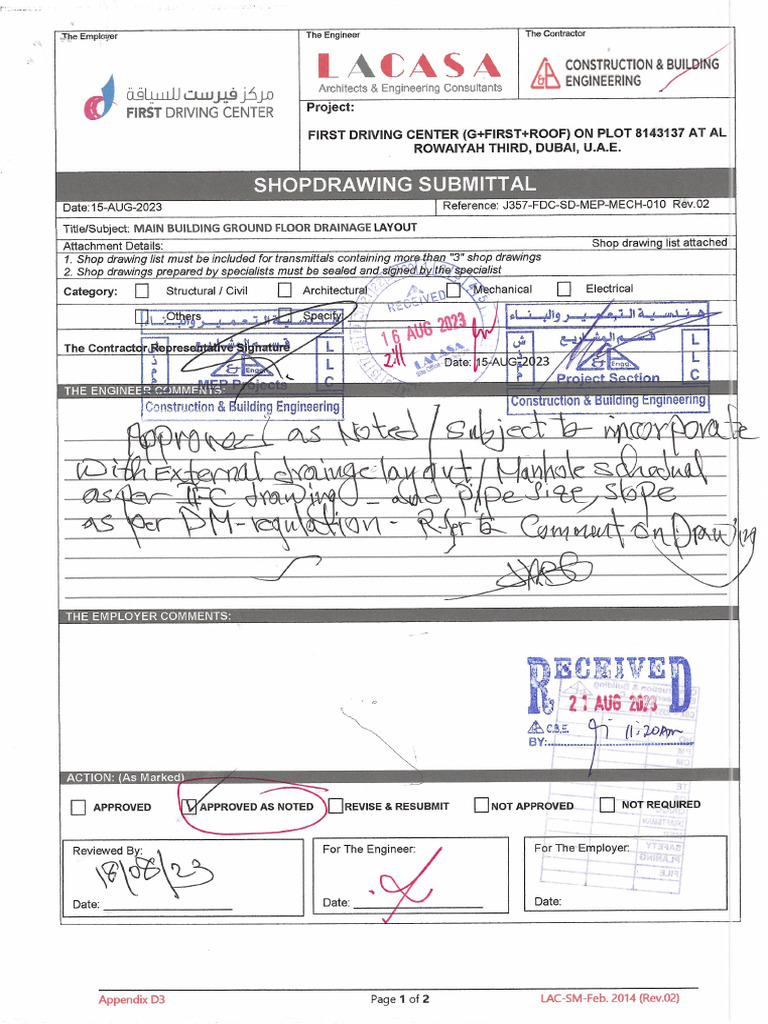 The Employer
مركز فيرست للسياقة
FIRST DRIVING CENTER
The Engineer
LACASA
Architects & Engineering Consultants
The Contractor
CONSTRUCTION & BUILDING
ENGINEERING
Project:
FIRST DRIVING CENTER (G+FIRST+ROOF) ON PLOT 8143137 AT AL
ROWAIYAH THIRD, DUBAI, U.A.E.
SHOPDRAWING SUBMITTAL
Date:15-AUG-2023
Reference: J357-FDC-SD-MEP-MECH-010 Rev.02
Title/Subject: MAIN BUILDING GROUND FLOOR DRAINAGE LAYOUT
Attachment Details:
Shop drawing list attached
1. Shop drawing list must be included for transmittals containing more than "3" shop drawings
2. Shop drawings prepared by specialists must be sealed and signed by the specialist
Category:
Structural / Civil
Architectural
Mechanical
Electrical
Others
Specify
RECEIVED
16 AUG 2023
LACASA
هندسية التعمير والبناء
قسم المشاريع
The Contractor Representative Signature
Date: 15-AUG-2023
L
L
C
MEP Projects
Construction & Building Engineering
Engg.
L
L
C
Project Section
Construction & Building Engineering
THE ENGINEER COMMENTS:
Approved as Noted / Subject to incorporate
with External drainge layout / Manhole schedual
as per IFC drawing - and pipe size, slope
as per DM-regulation - Refer to Comment on Drawing
THE EMPLOYER COMMENTS:
RECEIVED
21 AUG 2023
C.B.E.
11:20AM
BY:
ACTION: (As Marked)
APPROVED
APPROVED AS NOTED
REVISE & RESUBMIT
NOT APPROVED
NOT REQUIRED
Reviewed By:
18/08/23
Date:
For The Engineer:
Date:
For The Employer:
Date:
Appendix D3
Page 1 of 2
LAC-SM-Feb. 2014 (Rev.02)